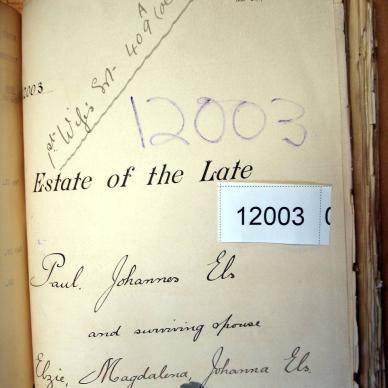 1st Wife's Est. 409
A
12003
12003
Estate of the Late
12003
Paul. Johannes Els
and surviving spouse
Elzie, Magdalena, Johanna Els.